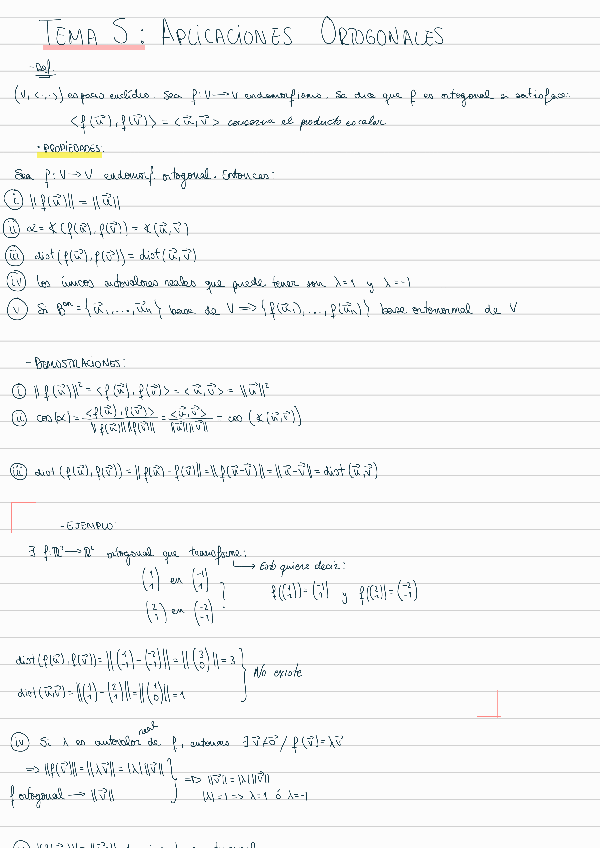 TEMA 5: APLICACIONES ORTOGONALES
- Def.
(V, <·,·>) espacio euclídeo. Sea f: V → V endomorfismo. Se dice que f es ortogonal si satisface:
<f(u⃗), f(v⃗)> = <u⃗, v⃗> conserva el producto escalar
· PROPIEDADES:
Sea f: V → V endomorf. ortogonal. Entonces:
i) ||f(u⃗)|| = ||u⃗||
ii) α = ∢(f(u⃗), f(v⃗)) = ∢(u⃗, v⃗)
iii) dist(f(u⃗), f(v⃗)) = dist(u⃗, v⃗)
iv) Los únicos autovalores reales que puede tener son λ=1 y λ=-1
v) Si Bᵒⁿ = {u⃗₁, ..., u⃗ₙ} base de V => {f(u⃗₁), ..., f(u⃗ₙ)} base ortonormal de V
- DEMOSTRACIONES:
i) ||f(u⃗)||² = <f(u⃗), f(v⃗)> = <u⃗, v⃗> = ||u⃗||²
ii) cos(α) = <f(u⃗), f(v⃗)> / ||f(u⃗)|| ||f(v⃗)|| = <u⃗, v⃗> / ||u⃗|| ||v⃗|| = cos(∢(u⃗, v⃗))
iii) dist(f(u⃗), f(v⃗)) = ||f(u⃗) - f(v⃗)|| = ||f(u⃗-v⃗)|| = ||u⃗-v⃗|| = dist(u⃗, v⃗)
- EJEMPLO
∃ f: ℝ² → ℝ² ortogonal que transforme:
→ Esto quiere decir:
(1 1) en (-1 1)
f((1 1)) = (-1 1) y f((2 1)) = (-2 -1)
(2 1) en (-2 -1)
dist(f(u⃗), f(v⃗)) = ||(1 -1) - (-2 -1)|| = ||(3 0)|| = 3
No existe
dist(u⃗, v⃗) = ||(1 1) - (2 1)|| = ||(1 0)|| = 1
iv) Si λ es autovalor real de f, entonces ∃ v⃗≠0⃗ / f(v⃗) = λv⃗
=> ||f(v⃗)|| = ||λv⃗|| = |λ| ||v⃗||
=> ||v⃗|| = |λ| ||v⃗||
f ortogonal → ||v⃗||
|λ| = 1 => λ=1 ó λ=-1